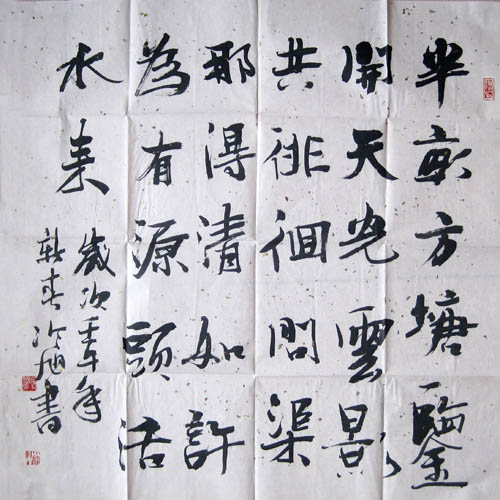 半畝方塘一鑒
開天光雲影
共徘徊問渠
那得清如許
為有源頭活
水来
歲次壬午年
新春冷旭書